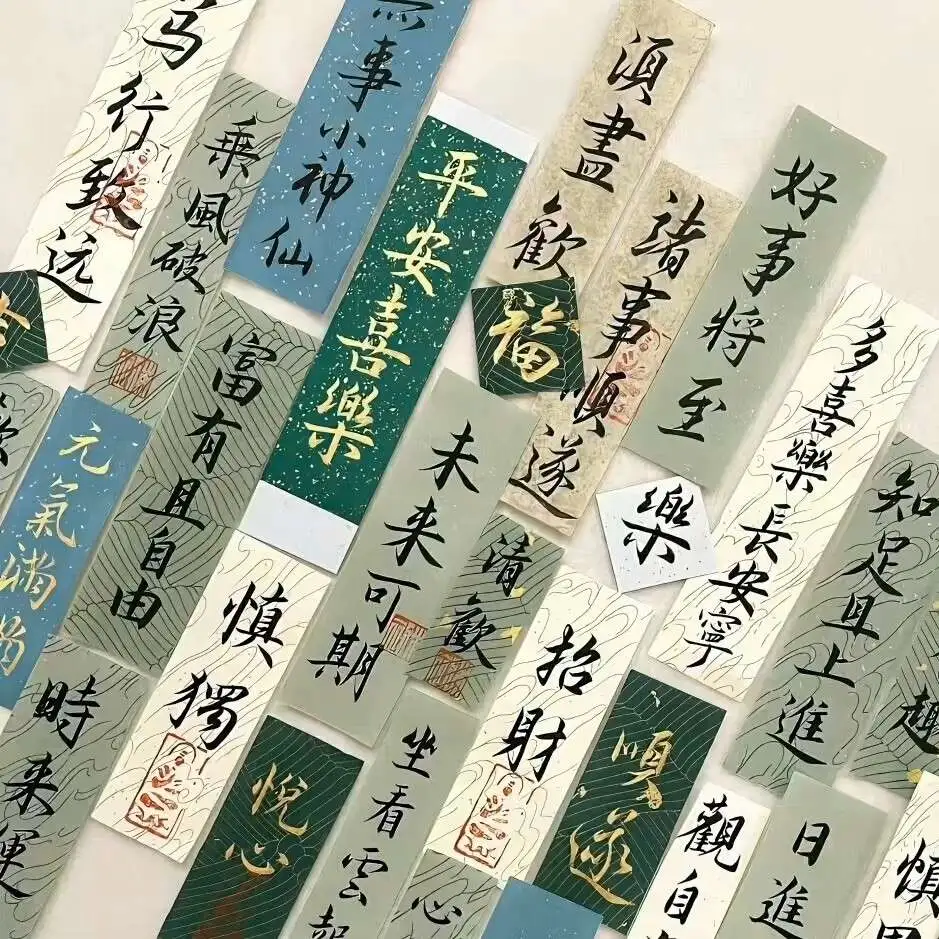 马行致远
乘風破浪
事小神仙
平安喜樂
須盡歡
諸事順遂
好事将至
福
多喜樂長安寧
知足且上進
富有且自由
元氣満满
未来可期
樂
清歡
慎獨
招財
順遂
時来運
悦心
坐看雲起
心
觀自
日進
慎
趣